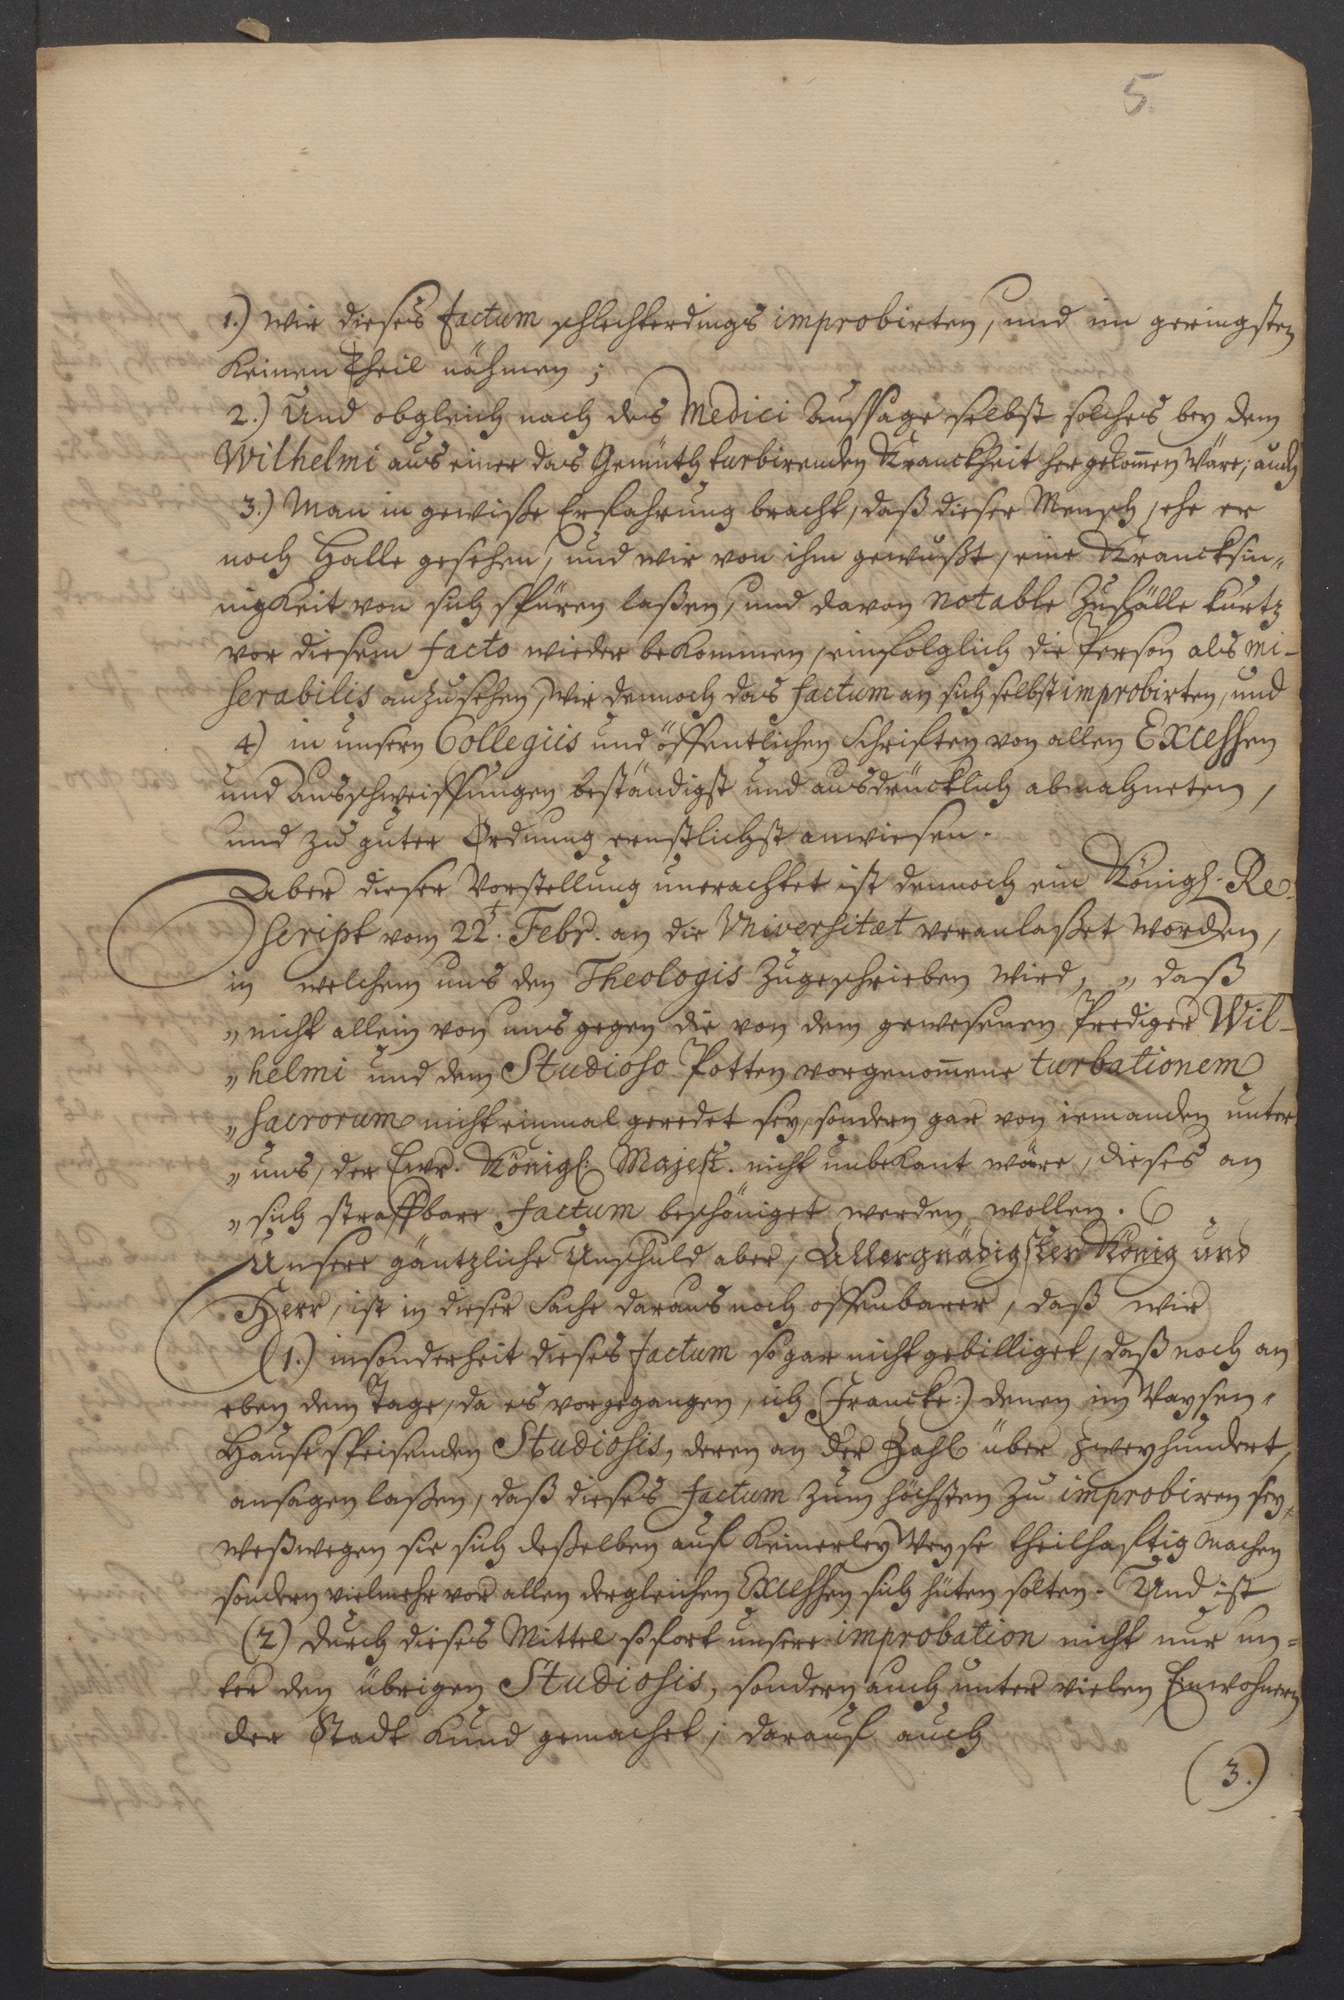 5.
1.) wir dieses factum schlechterdings improbirten, und im geringsten
keinen Theil nähmen;
2.) Und obgleich nach des Medici Aussage selbst solches bey dem
Wilhelmi aus einer das Gemüth turbirenden Kranckheit hergekom̄en wäre; auch
3.) Man in gewiße Erfahrung bracht, daß dieser Mensch, ehe er
noch Halle gesehen, und wir von ihm gewußt, eine Krancksin-
nigkeit von sich spüren laßen, und davon notable Zufälle kurtz
vor diesem facto wieder bekommen, einfolglich die Person als mi-
serabilis anzusehen, wir dennoch das factum an sich selbst improbirten, und
4) in unsern Collegiis und öffentlichen Schriften von allen Excessen
und Ausschweiffungen beständigst und ausdrücklich abmahneten,
und zu guter Ordnung ernstlichst anwiesen.
Aber dieser Vorstellung unerachtet ist dennoch ein Königl. Re-
script vom 22t. Febr. an die Universitæt veranlaßet worden,
in welchem uns den Theologis zugeschrieben wird, „ daß
„ nicht allein von uns gegen die von dem gewesenen Prediger Wil-
„ helmi und dem Studioso Potten vorgenom̄ene turbationem
„ sacrorum nicht einmal geredet sey, sondern gar von iemanden unter
„ uns, der Ewr. Königl. Majest. nicht unbekant wäre, dieses an
„ sich straffbare factum beschöniget werden wollen.
Unsere gäntzliche Unschuld aber, Allergnädigster König und
Herr, ist in dieser Sache daraus noch offenbarer, daß wir
(1.) insonderheit dieses factum sogar nicht gebilliget, daß noch an
eben dem Tage, da es vorgegangen, ich (Francke:) denen im Waysen-
Hause speisenden Studiosis, deren an der Zahl über zweyhundert,
ansagen laßen, daß dieses factum zum höchsten zu improbiren sey,
weßwegen sie sich deßelben auf keinerley Weyse theilhafftig machen
sondern vielmehr vor allen dergleichen Excessen sich hüten solten. Und ist
(2) durch dieses Mittel sofort unsere improbation nicht nur un-
ter den übrigen Studiosis, sondern auch unter vielen Einwohnern
der Stadt kund gemachet; darauf auch
(3.)